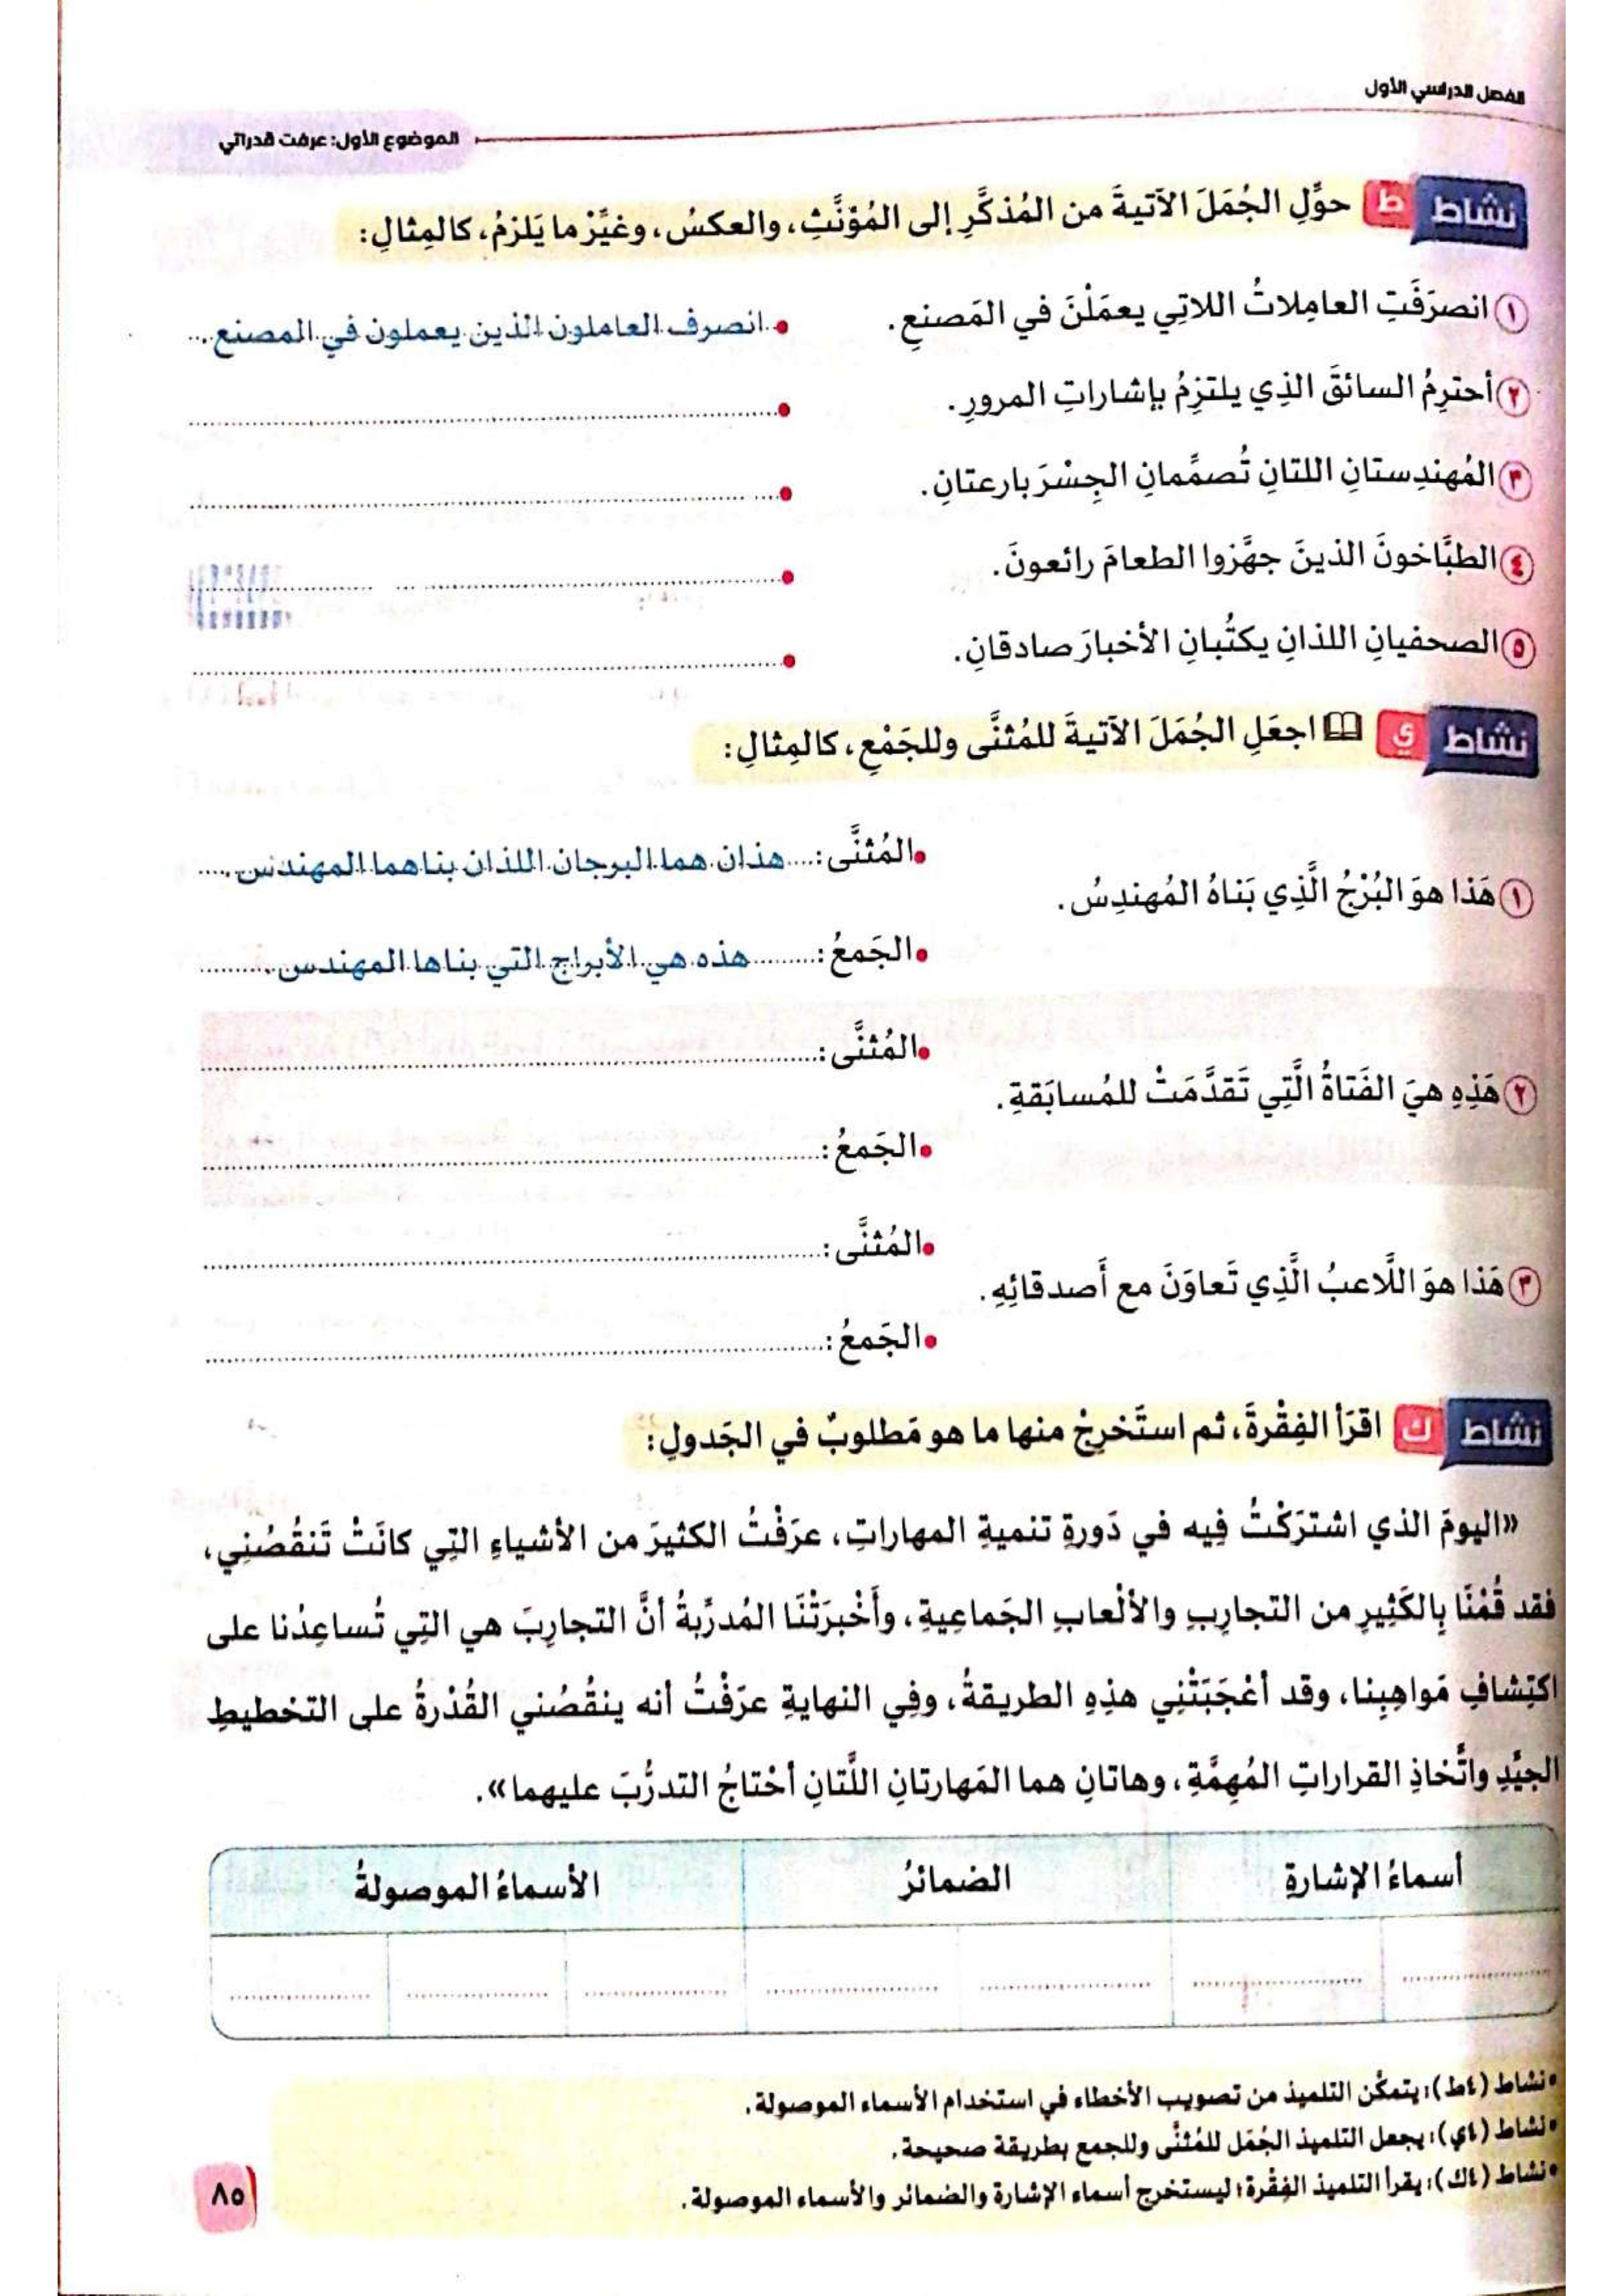 الفصل الدراسي الأول
الموضوع الأول: عرفت قدراتي
نشاط ط حوِّلِ الجُمَلَ الآتيةَ من المُذكَّرِ إلى المُؤنَّثِ، والعكسُ، وغيِّرْ ما يَلزمُ، كالمِثالِ:
١ انصرَفَتِ العامِلاتُ اللاتِي يعمَلْنَ في المَصنعِ. • انصرف العاملون الذين يعملون في المصنع.
٢ أحترِمُ السائقَ الذِي يلتزِمُ بإشاراتِ المرورِ. •
٣ المُهندِستانِ اللتانِ تُصمِّمانِ الجِسْرَ بارعتانِ. •
٤ الطبَّاخونَ الذينَ جهَّزوا الطعامَ رائعونَ. •
٥ الصحفيانِ اللذانِ يكتُبانِ الأخبارَ صادقانِ. •
نشاط ي اجعَلِ الجُمَلَ الآتيةَ للمُثنَّى وللجَمْعِ، كالمِثالِ:
• المُثنَّى: هذان هما البرجان اللذان بناهما المهندس.
١ هَذا هوَ البُرْجُ الَّذِي بَناهُ المُهندِسُ.
• الجَمعُ: هذه هي الأبراج التي بناها المهندس.
• المُثنَّى:
٢ هَذِهِ هيَ الفَتاةُ الَّتِي تَقدَّمَتْ للمُسابَقةِ.
• الجَمعُ:
• المُثنَّى:
٣ هَذا هوَ اللَّاعبُ الَّذِي تَعاوَنَ مع أَصدقائِهِ.
• الجَمعُ:
نشاط ك اقرَأ الفِقْرةَ، ثم استَخرِجْ منها ما هو مَطلوبٌ في الجَدولِ:
«اليومَ الذي اشترَكْتُ فِيه في دَورةِ تنميةِ المهاراتِ، عرَفْتُ الكثيرَ من الأشياءِ التِي كانَتْ تَنقُصُنِي،
فقد قُمْنَا بِالكَثِيرِ من التجارِبِ والألْعابِ الجَماعِيةِ، وأَخْبرَتْنَا المُدرِّبةُ أنَّ التجارِبَ هي التِي تُساعِدُنا على
اكتِشافِ مَواهِبِنا، وقد أعْجَبَتْنِي هذِهِ الطريقةُ، وفِي النهايةِ عرَفْتُ أنه ينقُصُني القُدْرةُ على التخطيطِ
الجيِّدِ واتِّخاذِ القراراتِ المُهِمَّةِ، وهاتانِ هما المَهارتانِ اللَّتانِ أحْتاجُ التدرُّبَ عليهما».
أسماءُ الإشارةِ الضمائرُ الأسماءُ الموصولةُ
• نشاط (٤ط): يتمكَّن التلميذ من تصويب الأخطاء في استخدام الأسماء الموصولة.
• نشاط (٤ي): يجعل التلميذ الجُمَل للمُثنَّى وللجمع بطريقة صحيحة.
• نشاط (٤ك): يقرأ التلميذ الفِقْرة؛ ليستخرج أسماء الإشارة والضمائر والأسماء الموصولة.
٨٥